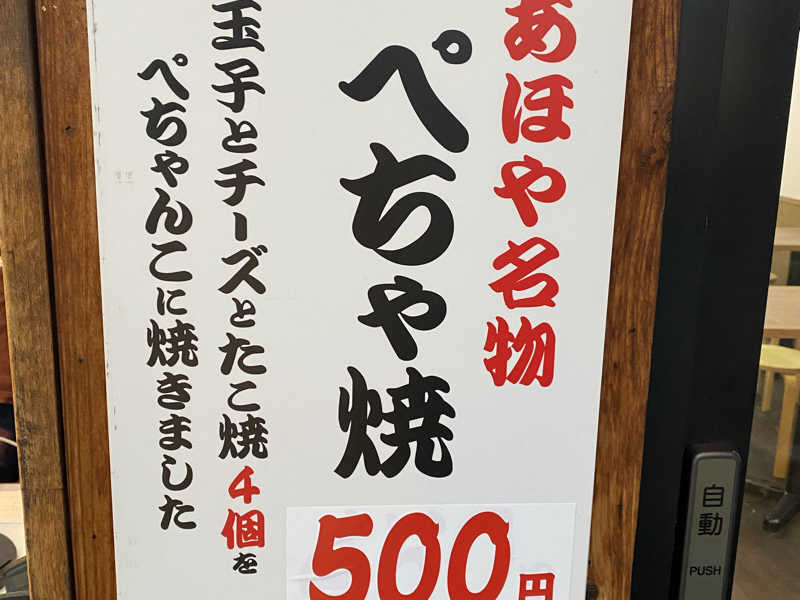 あほや名物
ぺちゃ焼
玉子とチーズとたこ焼4個を
ぺちゃんこに焼きました
500円
自動
PUSH